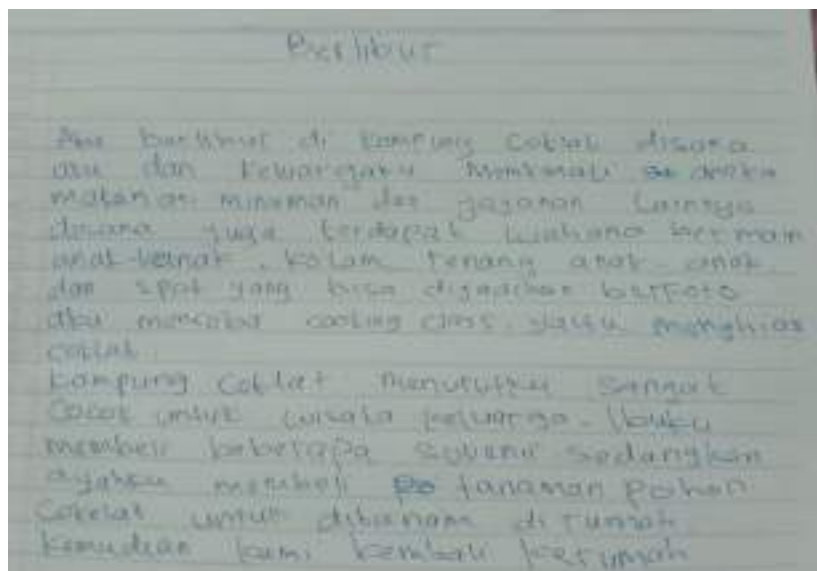 Berlibur
Aku berlibur di kampung coklat disana
aku dan keluargaku menikmati aneka
makanan minuman dan jajanan lainnya
disana juga terdapat wahana bermain
anak-kanak, kolam renang anak-anak
dan spot yang bisa dijadikan berfoto
aku mencoba cooking class yaitu menghias
coklat.
kampung coklat menurutku sangat
cocok untuk wisata keluarga. Ibuku
membeli beberapa suvenir sedangkan
ayahku membeli tanaman pohon
cokelat untuk ditanam di rumah
kemudian kami kembali kerumah